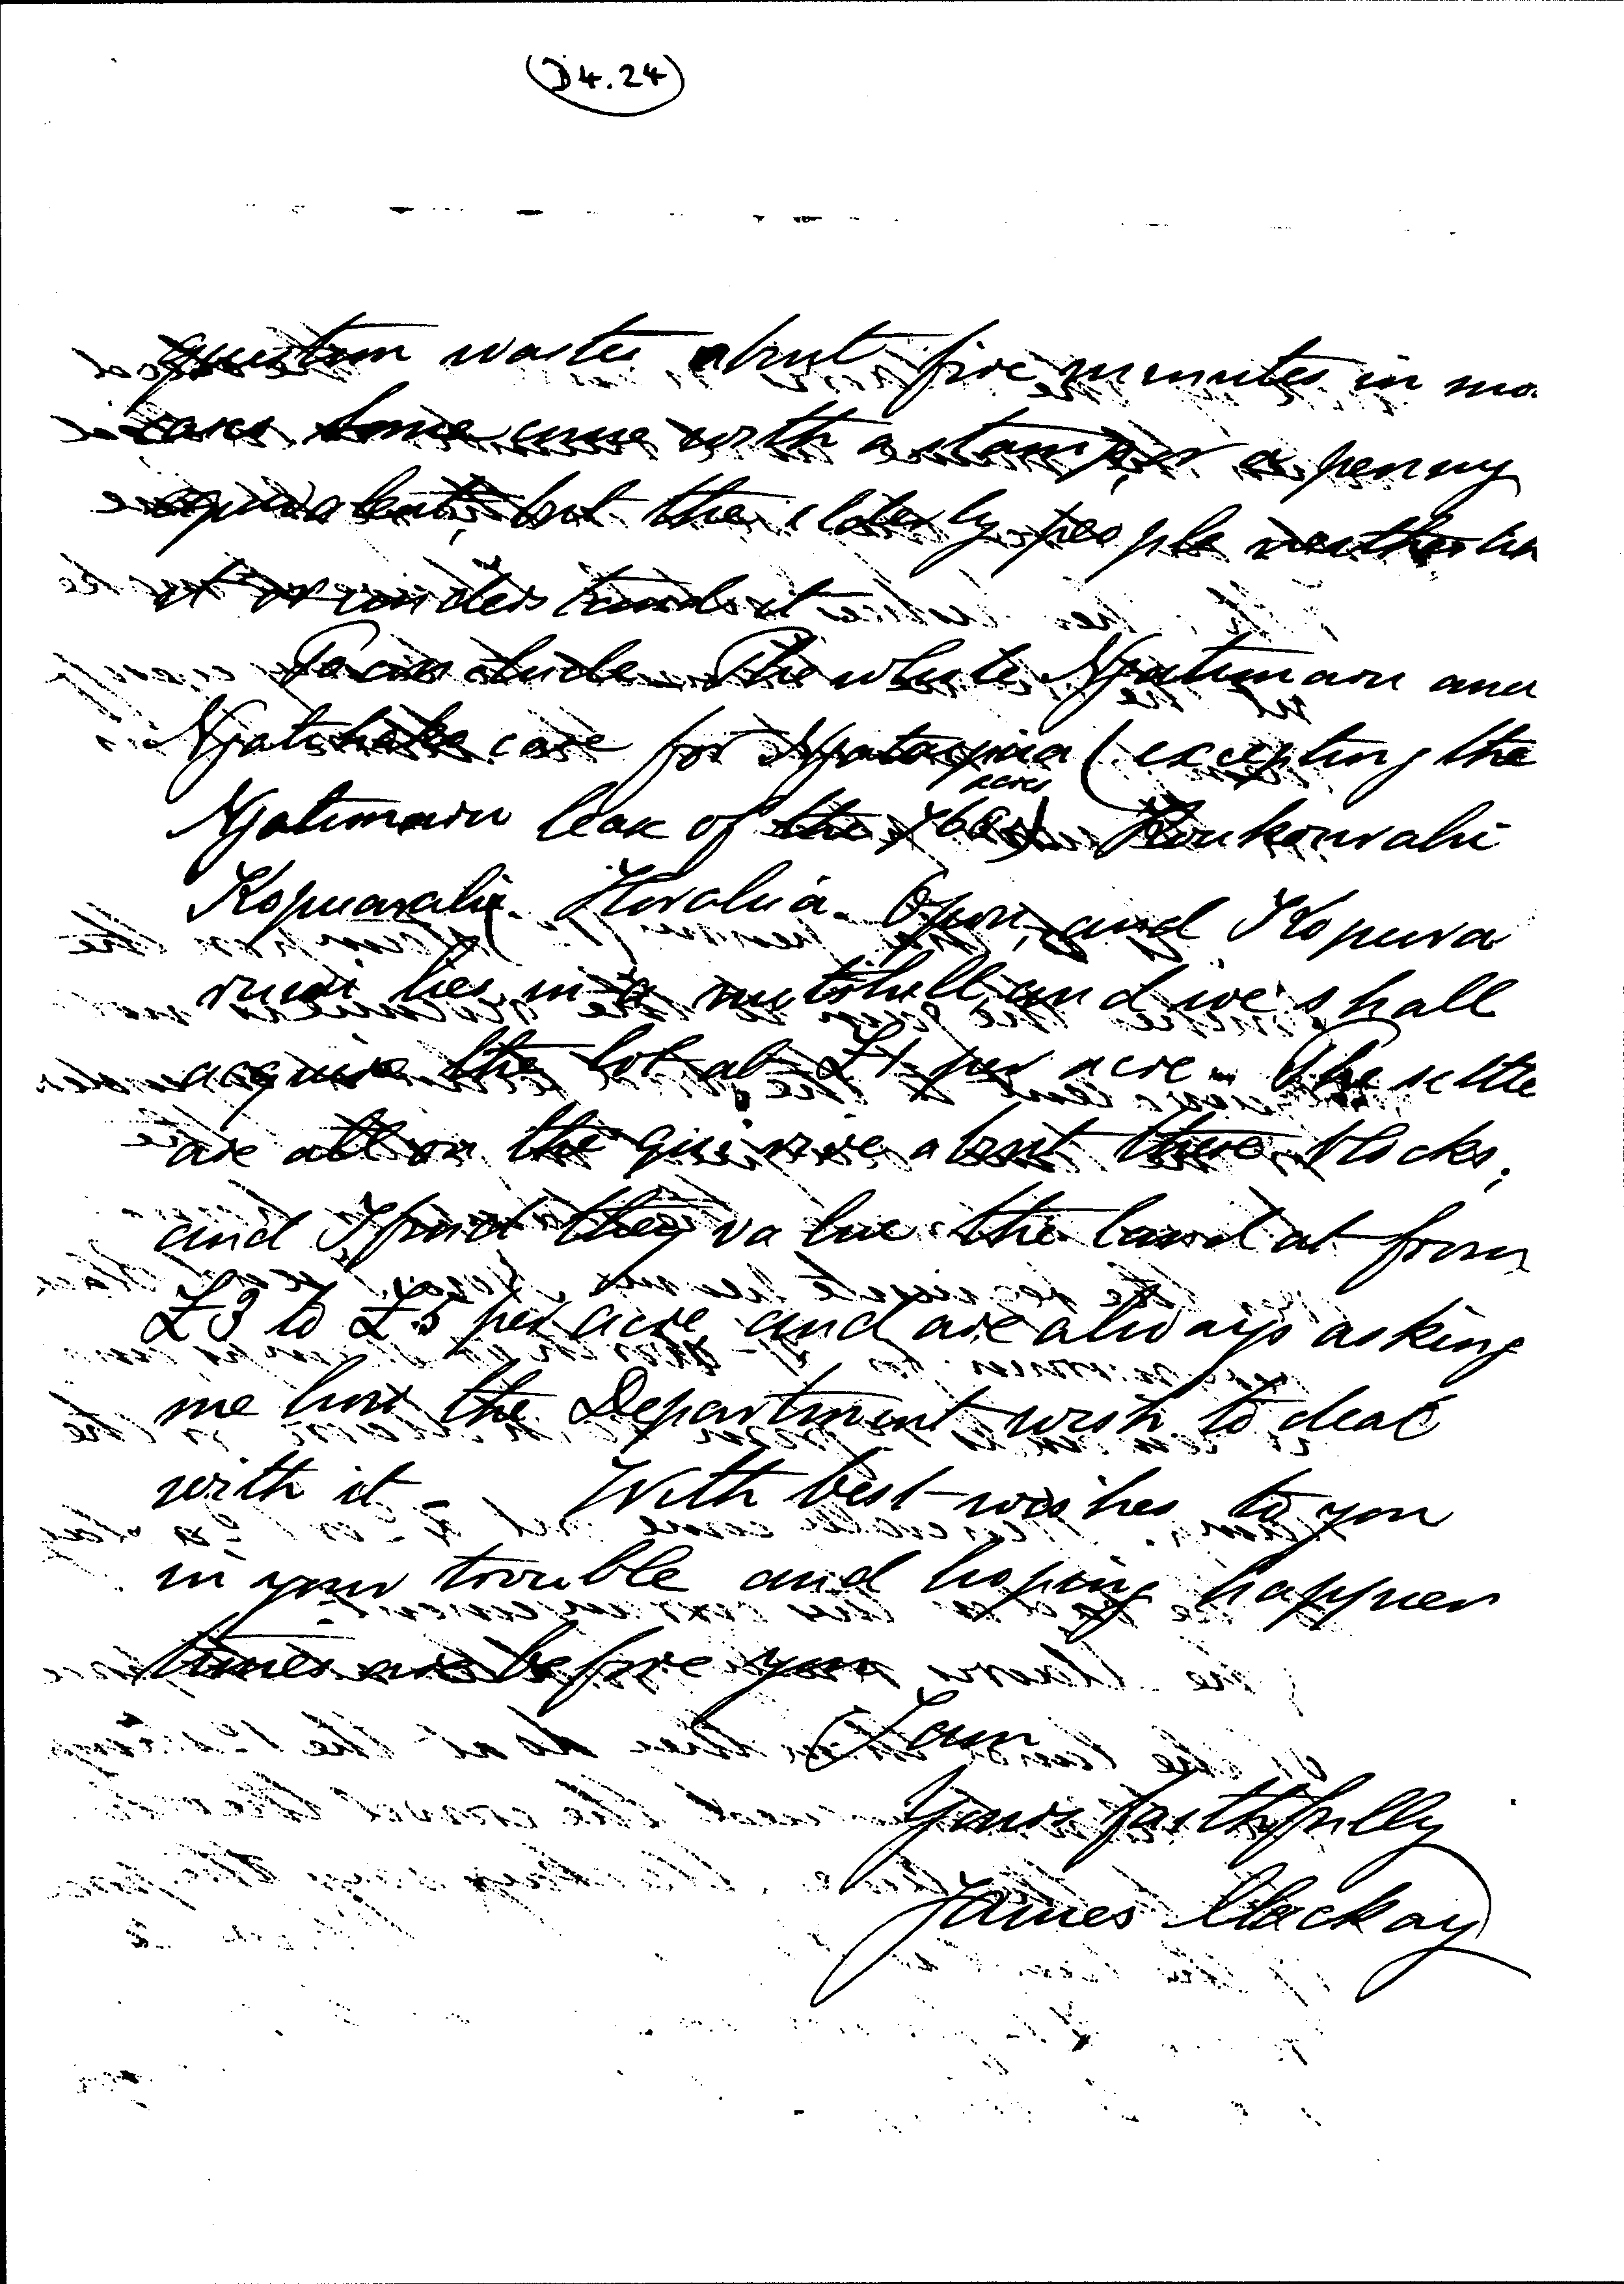 (D4.24)
question wastes about five minutes in mo
cases some come with a stamp, or a penny
equivalent, but the elderly people neither
it or understand it
To conclude. The whole Ngatimaru and
Ngatihako case for (excepting the
Ngatimaru leak of the acres)
Kopuarahi. Horahia. Opou, and Kopura
ruwai lies in a nutshell and we shall
acquire the lot at £1 per acre. The settle
are all on the qui vive about these blocks,
and I find they value the land at from
£3 to £5 per acre, and are always asking
me how the Department wish to deal
with it - With best wishes to you
in your trouble and hoping happier
times are before you
I am
Yours faithfully
James Mackay